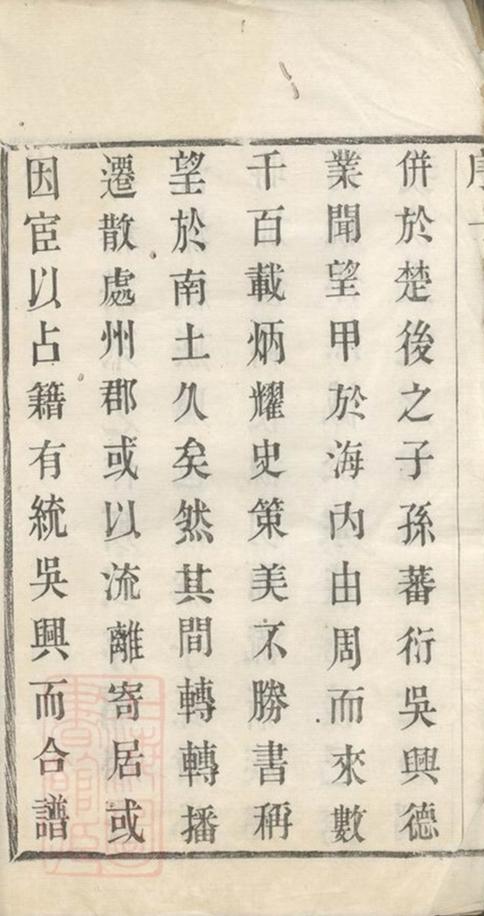 序
併於楚後之子孫蕃衍吳興德
業聞望甲於海內由周而來數
千百載炳耀史策美不勝書稱
望於南土久矣然其間轉轉播
遷散處州郡或以流離寄居或
因宦以占籍有統吳興而合譜